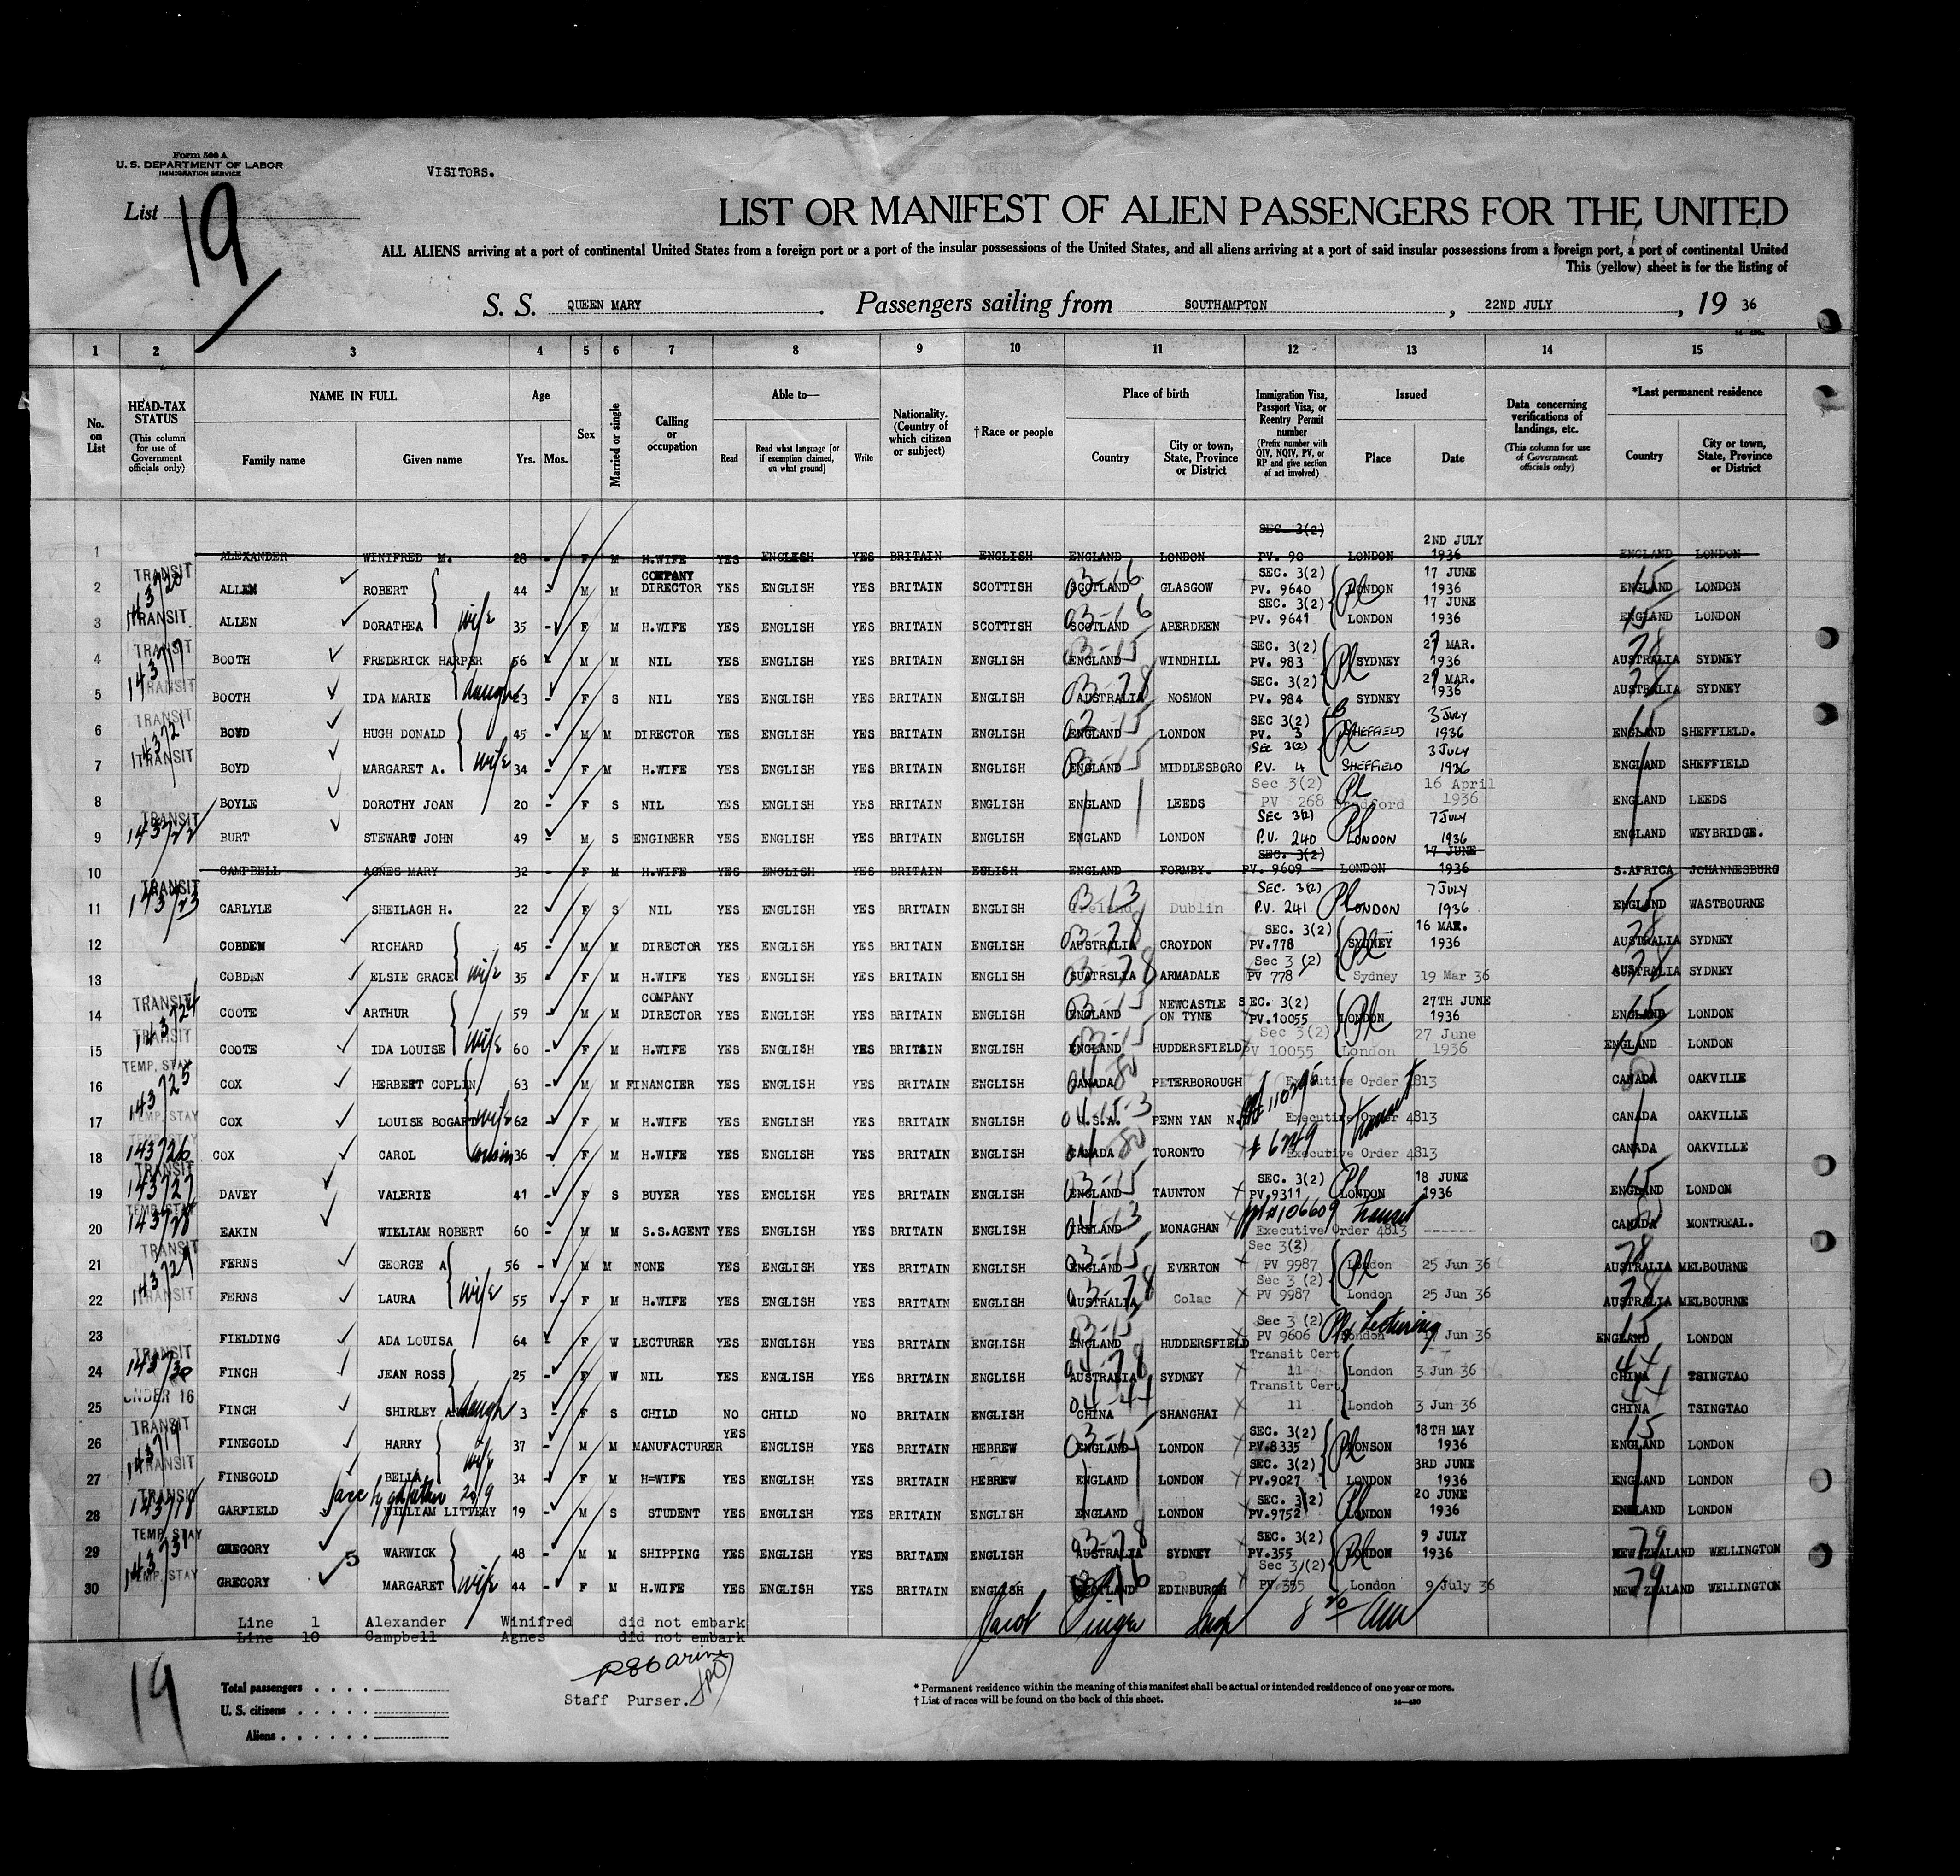 Form 500 A
U. S. DEPARTMENT OF LABOR
IMMIGRATION SERVICE
VISITORS.
List 19
LIST OR MANIFEST OF ALIEN PASSENGERS FOR THE UNITED
ALL ALIENS arriving at a port of continental United States from a foreign port or a port of the insular possessions of the United States, and all aliens arriving at a port of said insular possessions from a foreign port, a port of continental United
This (yellow) sheet is for the listing of
S. S. QUEEN MARY. Passengers sailing from SOUTHAMPTON, 22ND JULY, 19 36
1 2 3 4 5 6 7 8 9 10 11 12 13 14 15
No. on List
HEAD-TAX STATUS (This column for use of Government officials only)
NAME IN FULL Family name Given name
Age Yrs. Mos.
Sex
Married or single
Calling or occupation
Able to— Read Read what language [or if exemption claimed, on what ground] Write
Nationality. (Country of which citizen or subject)
†Race or people
Place of birth Country City or town, State, Province or District
Immigration Visa, Passport Visa, or Reentry Permit number (Prefix number with QIV, NQIV, PV, or RP and give section of act involved)
Issued Place Date
Data concerning verifications of landings, etc. (This column for use of Government officials only)
*Last permanent residence Country City or town, State, Province or District
1 ALEXANDER WINIFRED M. 28 - F M H.WIFE YES ENGLISH YES BRITAIN ENGLISH ENGLAND LONDON SEC. 3(2) PV. 90 LONDON 2ND JULY 1936 ENGLAND LONDON
2 TRANSIT 143720 ALLEN ROBERT 44 - M M COMPANY DIRECTOR YES ENGLISH YES BRITAIN SCOTTISH SCOTLAND GLASGOW SEC. 3(2) PV. 9640 LONDON 17 JUNE 1936 ENGLAND LONDON
3 TRANSIT ALLEN DORATHEA wife 35 - F M H.WIFE YES ENGLISH YES BRITAIN SCOTTISH SCOTLAND ABERDEEN SEC. 3(2) PV. 9641 LONDON 17 JUNE 1936 ENGLAND LONDON
4 TRANSIT 143717 BOOTH FREDERICK HARPER 56 M M NIL YES ENGLISH YES BRITAIN ENGLISH ENGLAND WINDHILL SEC. 3(2) PV. 983 SYDNEY MAR. 1936 AUSTRALIA SYDNEY
5 TRANSIT BOOTH IDA MARIE 23 F S NIL YES ENGLISH YES BRITAIN ENGLISH AUSTRALIA NOSMON SEC. 3(2) PV. 984 SYDNEY MAR. 1936 AUSTRALIA SYDNEY
6 TRANSIT 143721 BOYD HUGH DONALD 45 - M M DIRECTOR YES ENGLISH YES BRITAIN ENGLISH ENGLAND LONDON SEC 3(2) PV. 3 SHEFFIELD 3 JULY 1936 ENGLAND SHEFFIELD.
7 TRANSIT BOYD MARGARET A. wife 34 - F M H.WIFE YES ENGLISH YES BRITAIN ENGLISH ENGLAND MIDDLESBORO SEC 3(2) P.V. 4 SHEFFIELD 3 JULY 1936 ENGLAND SHEFFIELD
8 BOYLE DOROTHY JOAN 20 - F S NIL YES ENGLISH YES BRITAIN ENGLISH ENGLAND LEEDS Sec 3(2) PV 268 Bradford 16 April 1936 ENGLAND LEEDS
9 TRANSIT 143722 BURT STEWART JOHN 49 - M S ENGINEER YES ENGLISH YES BRITAIN ENGLISH ENGLAND LONDON SEC 3(2) P.V. 240 LONDON 7 JULY 1936 ENGLAND WEYBRIDGE.
10 CAMPBELL AGNES MARY 32 - F M H.WIFE YES ENGLISH YES BRITAIN ENLISH ENGLAND FORMBY. SEC. 3(2) PV. 9609 LONDON 17 JUNE 1936 S.AFRICA JOHANNESBURG
11 TRANSIT 143723 CARLYLE SHEILAGH H. 22 F S NIL YES ENGLISH YES BRITAIN ENGLISH Ireland Dublin SEC. 3(2) P.V. 241 LONDON 7 JULY 1936 ENGLAND WASTBOURNE
12 COBDEN RICHARD 45 - M M DIRECTOR YES ENGLISH YES BRITAIN ENGLISH AUSTRALIA CROYDON SEC. 3(2) PV.778 SYDNEY 16 MAR. 1936 AUSTRALIA SYDNEY
13 COBDEN ELSIE GRACE wife 35 - F M H.WIFE YES ENGLISH YES BRITAIN ENGLISH ARMADALE Sec 3 (2) PV 778 Sydney 19 Mar 36 AUSTRALIA SYDNEY
14 TRANSIT 143724 COOTE ARTHUR 59 - M M COMPANY DIRECTOR YES ENGLISH YES BRITAIN ENGLISH ENGLAND NEWCASTLE ON TYNE SEC. 3(2) PV.10055 LONDON 27TH JUNE 1936 ENGLAND LONDON
15 TRANSIT COOTE IDA LOUISE wife 60 - F M H.WIFE YES ENGLISH YES BRITAIN ENGLISH ENGLAND HUDDERSFIELD Sec 3(2) PV 10055 London 27 June 1936 ENGLAND LONDON
16 TEMP. STAY 143725 COX HERBERT COPLIN 63 - M M FINANCIER YES ENGLISH YES BRITAIN ENGLISH CANADA PETERBOROUGH Executive Order 4813 CANADA OAKVILLE
17 TEMP. STAY COX LOUISE BOGART wife 62 - F M H.WIFE YES ENGLISH YES BRITAIN ENGLISH U.S.A. PENN YAN Executive Order 4813 Transit CANADA OAKVILLE
18 TEMP. STAY 143726 COX CAROL cousin 36 - F M H.WIFE YES ENGLISH YES BRITAIN ENGLISH CANADA TORONTO Executive Order 4813 CANADA OAKVILLE
19 TRANSIT 143727 DAVEY VALERIE 41 - F S BUYER YES ENGLISH YES BRITAIN ENGLISH ENGLAND TAUNTON SEC. 3(2) PV.9311 LONDON 18 JUNE 1936 ENGLAND LONDON
20 TEMP. STAY 143728 EAKIN WILLIAM ROBERT 60 - M M S.S.AGENT YES ENGLISH YES BRITAIN ENGLISH IRELAND MONAGHAN ppt #106609 Transit Executive Order 4813 ------ CANADA MONTREAL.
21 TRANSIT 143729 FERNS GEORGE A 56 - M M NONE YES ENGLISH YES BRITAIN ENGLISH ENGLAND EVERTON Sec 3(2) PV 9987 London 25 Jun 36 AUSTRALIA MELBOURNE
22 TRANSIT FERNS LAURA wife 55 - F M H.WIFE YES ENGLISH YES BRITAIN ENGLISH AUSTRALIA Colac Sec 3 (2) PV 9987 London 25 Jun 36 AUSTRALIA MELBOURNE
23 FIELDING ADA LOUISA 64 - F W LECTURER YES ENGLISH YES BRITAIN ENGLISH ENGLAND HUDDERSFIELD Sec 3 (2) PV 9606 London Lecturing Jun 36 ENGLAND LONDON
24 TRANSIT 143730 FINCH JEAN ROSS 25 - F W NIL YES ENGLISH YES BRITAIN ENGLISH AUSTRALIA SYDNEY Transit Cert 11 London 3 Jun 36 CHINA TSINGTAO
25 UNDER 16 FINCH SHIRLEY A. daugh 3 - F S CHILD NO CHILD NO BRITAIN ENGLISH CHINA SHANGHAI Transit Cert 11 London 3 Jun 36 CHINA TSINGTAO
26 TRANSIT 143719 FINEGOLD HARRY 37 - M M MANUFACTURER YES ENGLISH YES BRITAIN HEBREW ENGLAND LONDON SEC. 3(2) PV.8335 LONSON 18TH MAY 1936 ENGLAND LONDON
27 TRANSIT FINEGOLD BELLA wife 34 - F M H=WIFE YES ENGLISH YES BRITAIN HEBREW ENGLAND LONDON SEC. 3(2) PV.9027 LONDON 3RD JUNE 1936 ENGLAND LONDON
28 TRANSIT 143718 GARFIELD WILLIAM LITTERY 19 - M S STUDENT YES ENGLISH YES BRITAIN ENGLISH ENGLAND LONDON SEC. 3(2) PV.9752 LONDON 20 JUNE 1936 ENGLAND LONDON
29 TEMP. STAY 143731 GREGORY WARWICK 48 - M M SHIPPING YES ENGLISH YES BRITAIN ENGLISH AUSTRALIA SYDNEY SEC. 3(2) PV.355 LONDON 9 JULY 1936 NEW ZEALAND WELLINGTON
30 TEMP. STAY GREGORY MARGARET wife 44 - F M H.WIFE YES ENGLISH YES BRITAIN ENGLISH SCOTLAND EDINBURGH Sec 3 (2) PV 355 London 9 July 36 NEW ZEALAND WELLINGTON
Line 1 Alexander Winifred did not embark
Line 10 Campbell Agnes did not embark
19
Staff Purser.
Total passengers . . . .
U. S. citizens . . . . .
Aliens . . . . . .
* Permanent residence within the meaning of this manifest shall be actual or intended residence of one year or more.
† List of races will be found on the back of this sheet.